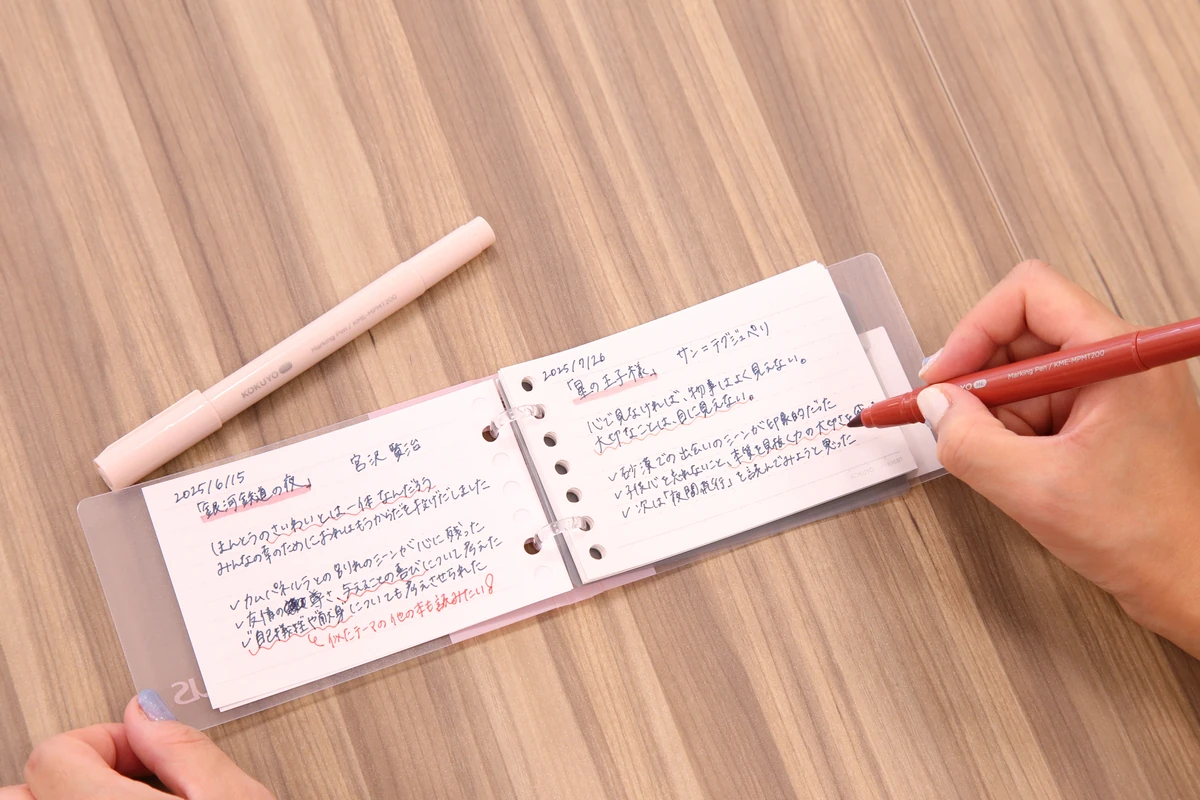 KOKUYO
Marking Pen / KME-MPM1200
2025/6/15
宮沢賢治
「銀河鉄道の夜」
ほんとうのさいわいとは一体なんだろう
みんなの幸のために
からだを投げだしました
✓カムパネルラとの別れのシーンが心に残った
✓友情の尊さ、与えることの喜びについて考えた
✓自己犠牲や献身についても考えさせられた
↳似たテーマの他の本も読みたい!
2025/7/26
サン=テグジュペリ
「星の王子様」
心で見なければ、物事はよく見えない。
大切なことは、目に見えない。
✓砂漠での出会いのシーンが印象的だった
✓子供心を忘れないこと、本質を見抜く力の大切さを
✓次は「夜間飛行」を読んでみようと思った
KOKUYO
Marking Pen / KME-MPM1200